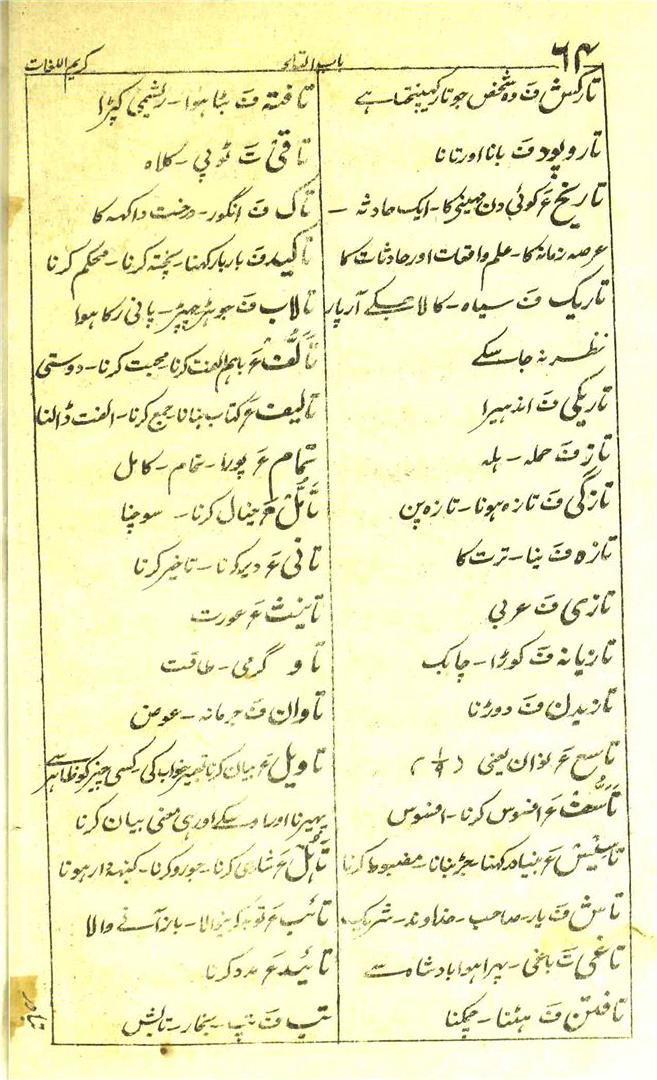 ۶۴
باب التاء
کریم اللغات
تارکش ف وہ شخص جو تار کھینچتا ہے
تار و پود ف بانا اور تانا
تاریخ ع کوئی دن مہینی کا - ایک حادثہ -
عرصہ زمانہ کا - علم واقعات اور حادثات کا
تاریک ف سیاہ - کالا جسکے آر پار
نظر نہ جا سکے
تاریکی ف اندہیرا
تاز ف حملہ - ہلہ
تازگی ف تازہ ہونا - تازہ پن
تازہ ف نیا - ترت کا
تازی ف عربی
تازیانہ ف کوڑا - چابک
تازیدن ف دوڑنا
تاسع ع نوان یعنی (۱/۹)
تاسُّف ع افسوس کرنا - افسوس
تاسیس ع بنیاد رکھنا جڑ بنانا - مضبوط کرنا
تاش ف یار - صاحب - خداوند - شریک
تاغی ت باغی - پہرا ہوا بادشاہ سے
تافتن ف ہٹنا - چمکنا
تافتہ ف بٹا ہوا - ریشمی کپڑا
تاقی ت ٹوپی - کلاہ
تاک ف انگور - درخت داکہہ کا
تاکید ف بار بار کہنا - پختہ کرنا - محکم کرنا
تالاب ف جوہڑ چھپڑ - پانی رکا ہوا
تالُّف ع باہم الفت کرنا - محبت کرنا - دوستی
تالیف ع کتاب بنانا - جمع کرنا - الفت ڈالنا
تمام ع پورا - تمام - کامل
تامُّل ع خیال کرنا - سوچنا
تانی ع دیر کرنا - تاخیر کرنا
تانیث ع عورت
تاو گرمی - طاقت
تاوان ف جرمانہ - عوض
تاویل ع بیان کرنا تعبیر خواب کی - کسی چیز کو ظاہر سے
پہیرنا اور اوسکے اور ہی معنی بیان کرنا
تاہُّل ع شادی کرنا - جورو کرنا - کنبہ دار ہونا
تائب ع توبہ کرنیوالا - باز آنے والا
تائید ع مدد کرنا
تب ف تپ - بخار - تابش